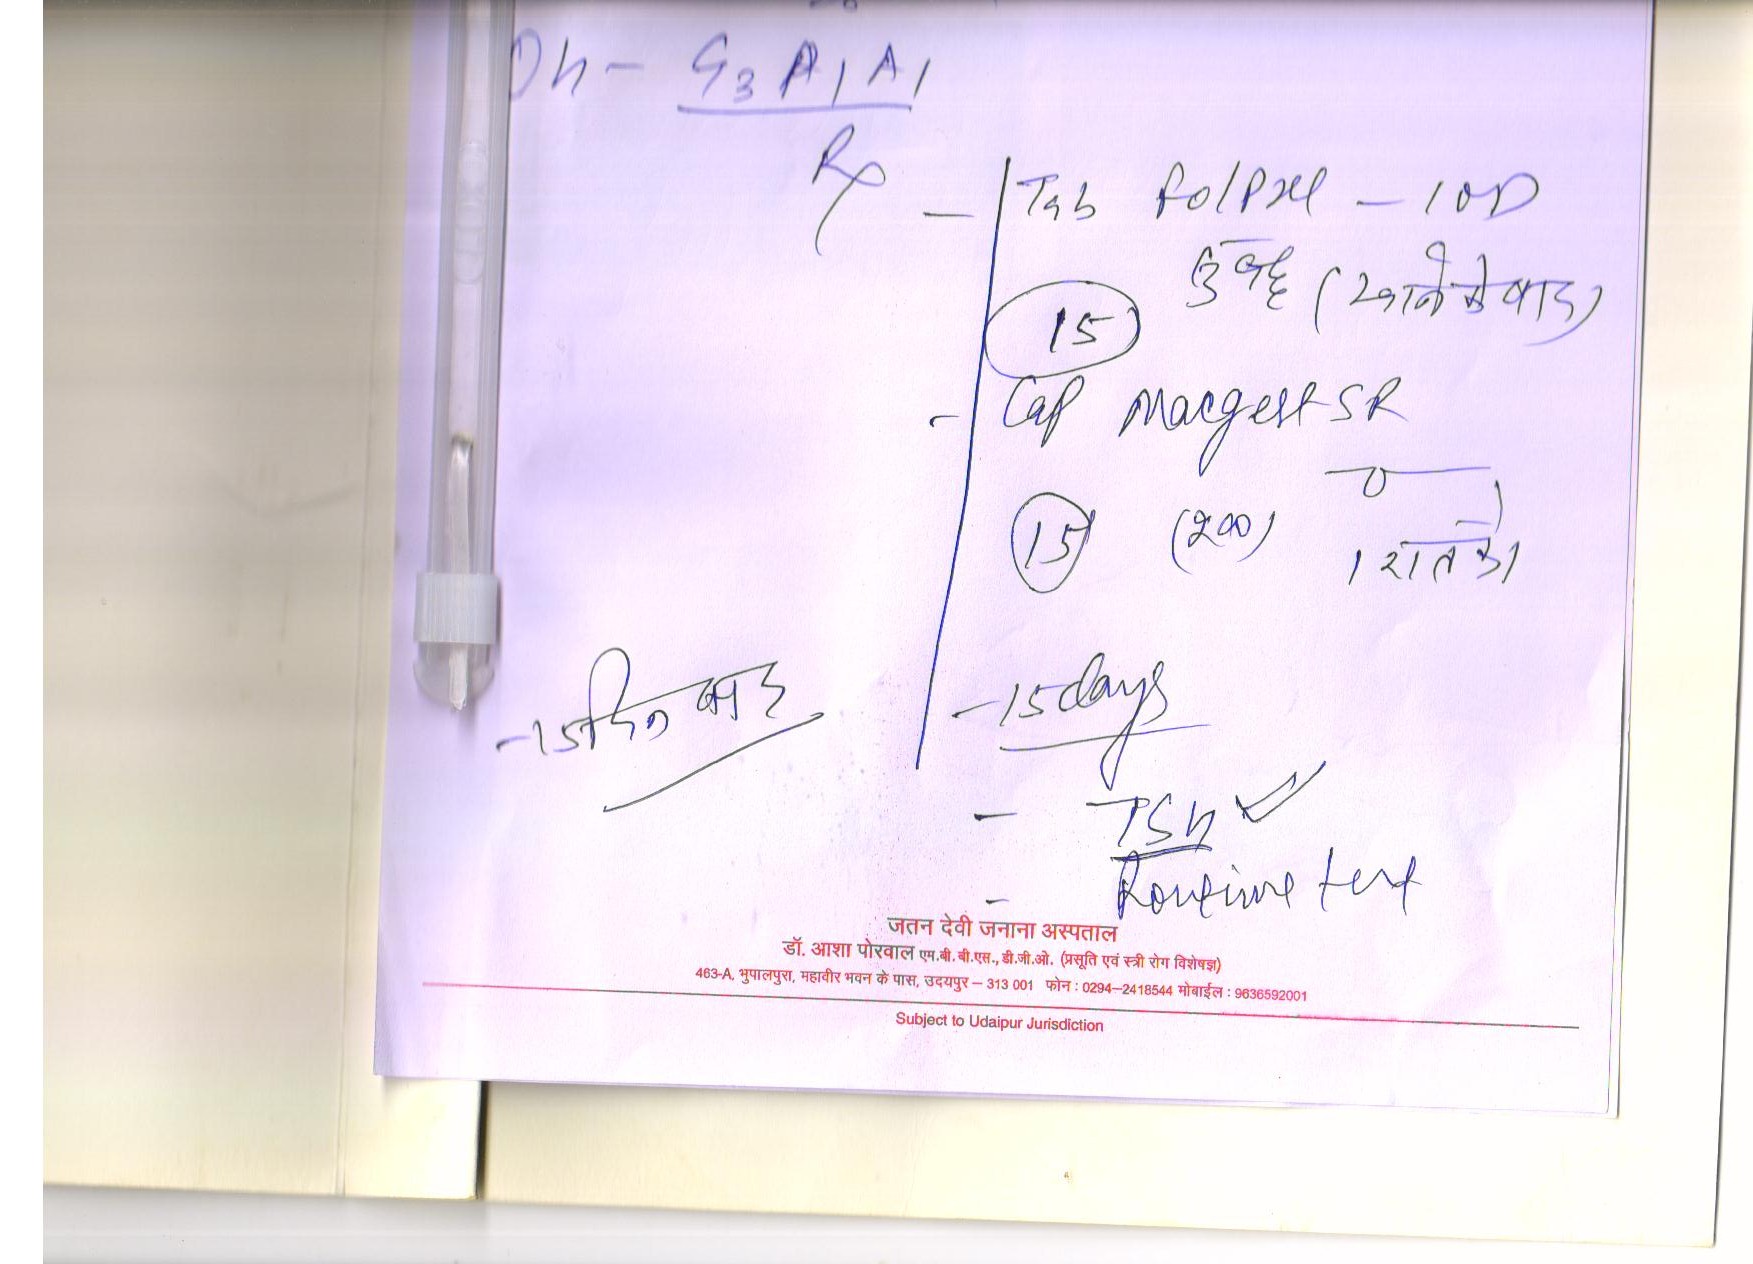 Oh - G3 P1 A1
Rx
- Tab Folpsel - 1 OD
सुबह (खाने के बाद)
15
- Cap Macgest SR
15 (200) 1 रात को
- 15 दिन बाद
- 15 days
- TSH ✓
- Routine test
जतन देवी जनाना अस्पताल
डॉ. आशा पोरवाल एम.बी.बी.एस., डी.जी.ओ. (प्रसूति एवं स्त्री रोग विशेषज्ञ)
463-A, भुपालपुरा, महावीर भवन के पास, उदयपुर – 313 001 फोन : 0294–2418544 मोबाईल : 9636592001
Subject to Udaipur Jurisdiction